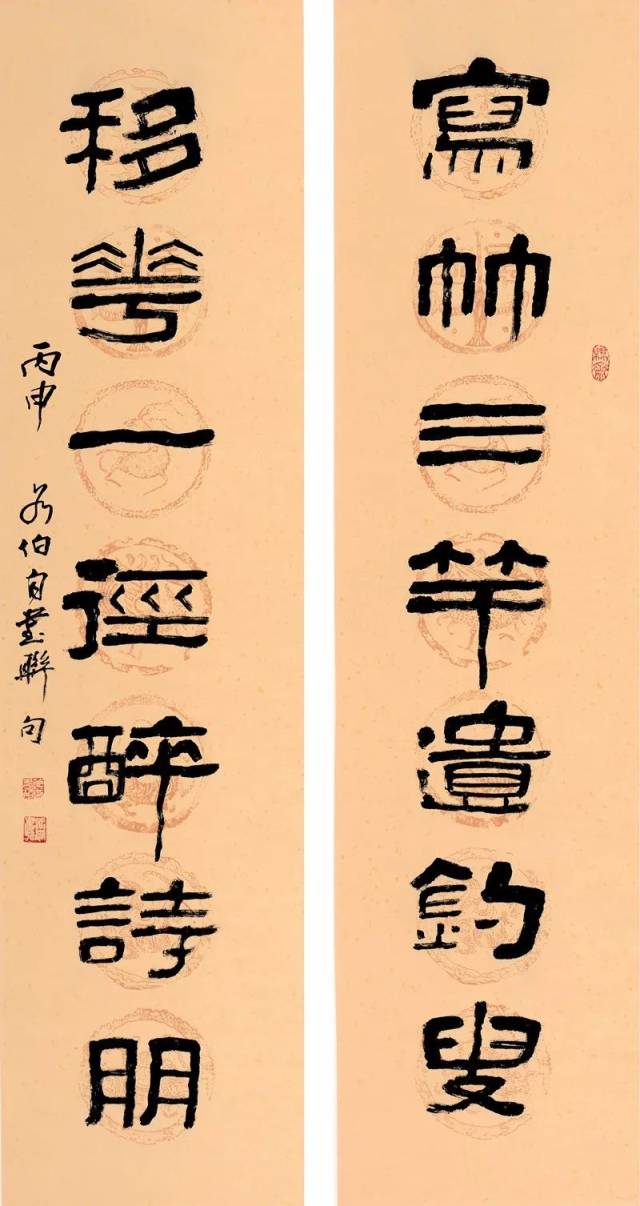 寫竹三竿遺釣叟
移華一徑醉詩朋
丙申 若伯自書聯句